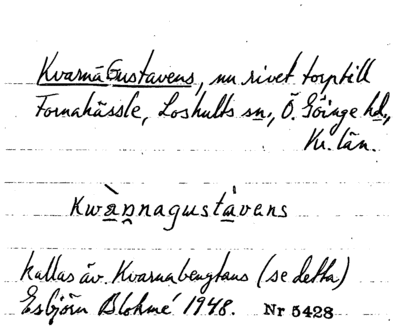 KvarnaGustavens, nu rivet torp till
Fornahässle, Loshults sn., Ö. Göinge hd.,
Kr. län.
Kwànnagustàvens
kallas äv. Kvarnabengtans (se detta)
Esbjörn Blohmé 1948. Nr 5428